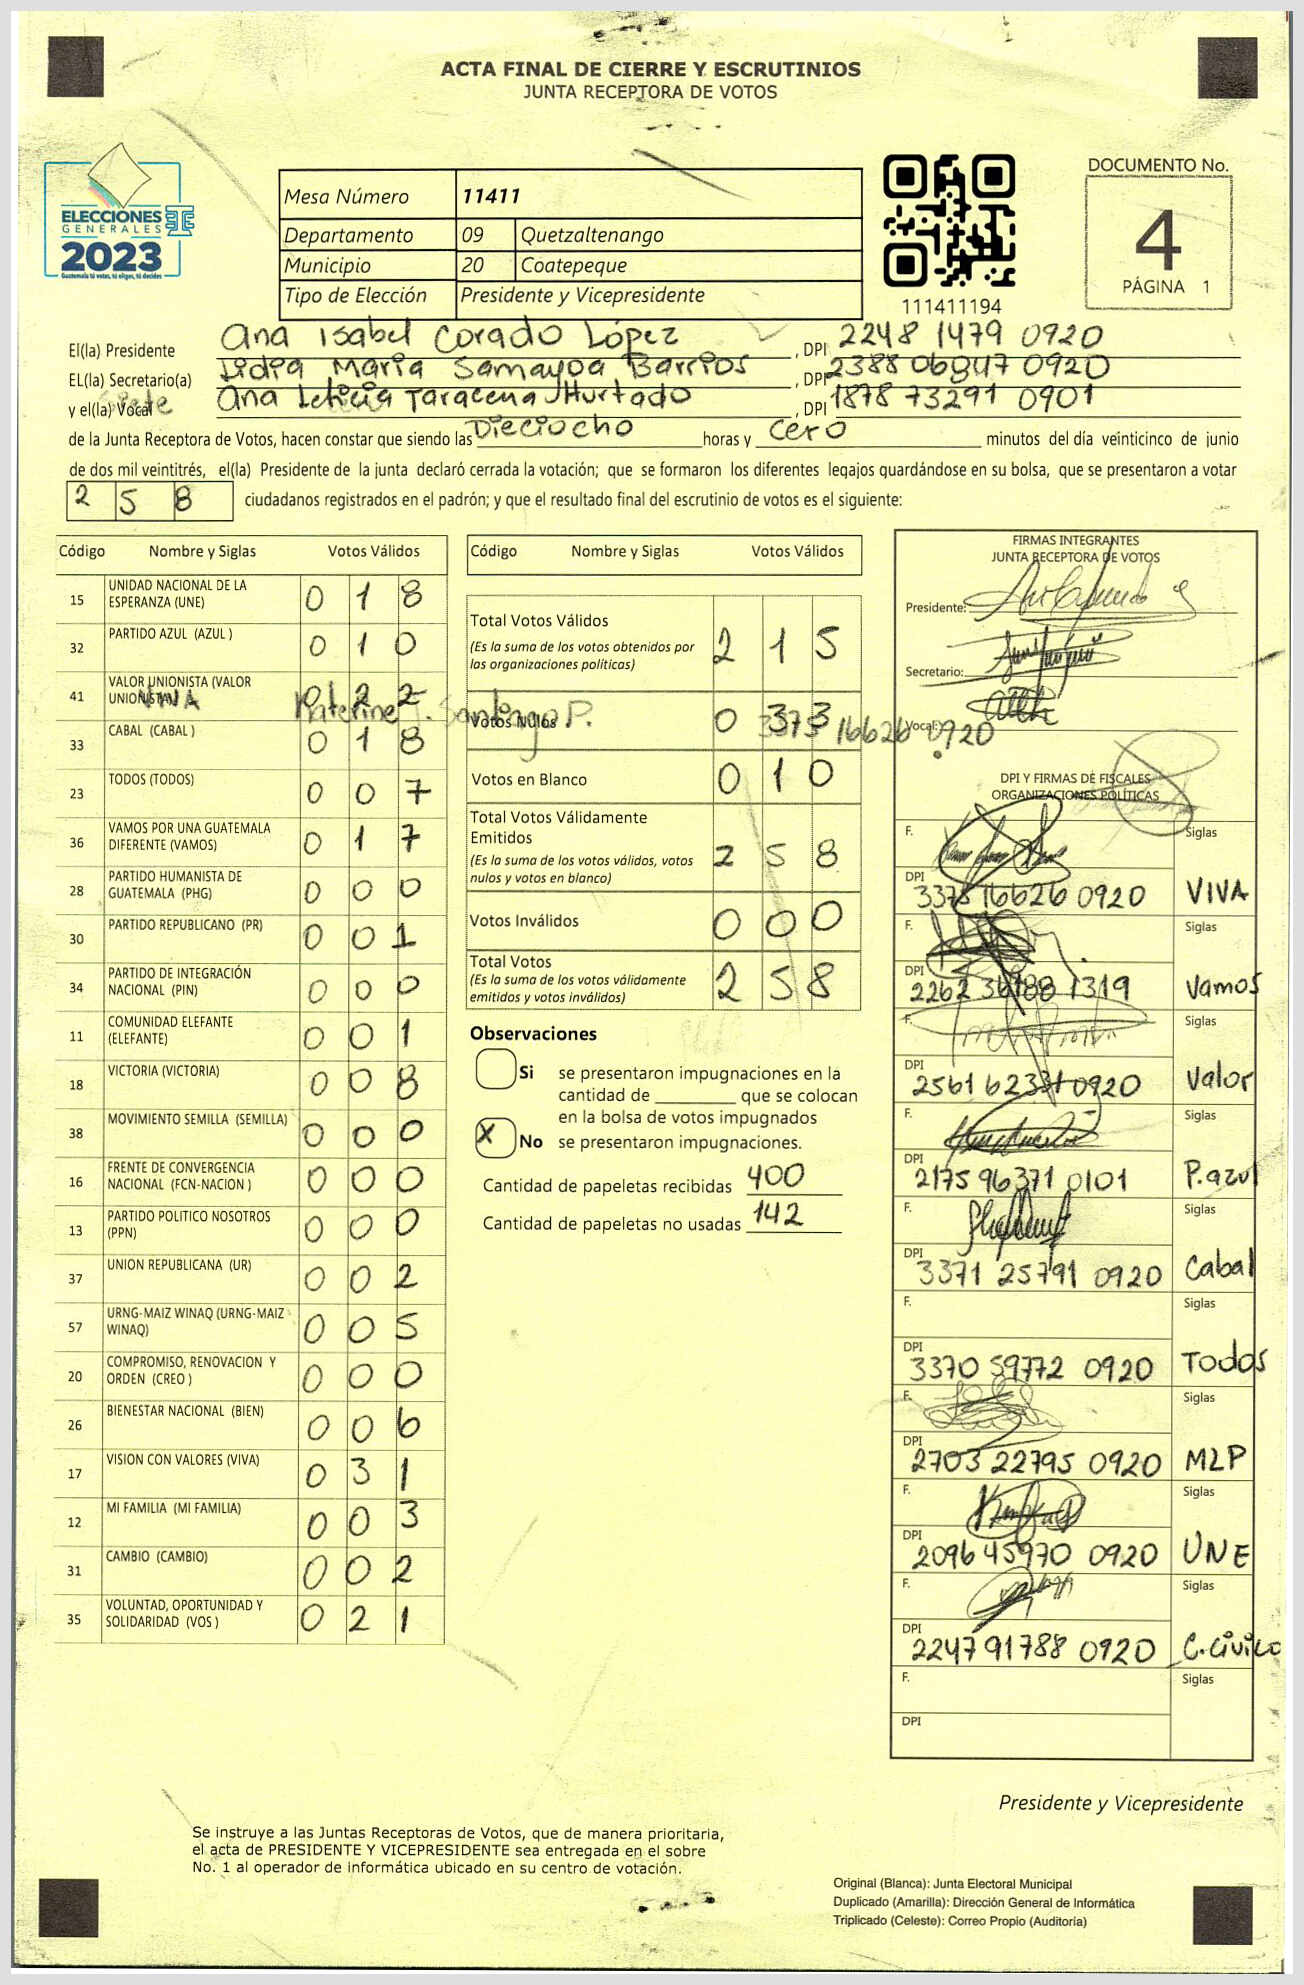 ACTA FINAL DE CIERRE Y ESCRUTINIOS
JUNTA RECEPTORA DE VOTOS
ELECCIONES
GENERALES
2023
Guatemala tú votas, tú eliges, tú decides
Mesa Número 11411
Departamento 09 Quetzaltenango
Municipio 20 Coatepeque
Tipo de Elección Presidente y Vicepresidente
111411194
DOCUMENTO No.
4
PÁGINA 1
El(la) Presidente Ana Isabel Corado López, DPI 2248 1479 0920
EL(la) Secretario(a) Lidia Maria Samayoa Barrios, DPI 2388 06847 0920
y el(la) Vocal Ana Leticia Taracena Hurtado, DPI 1878 73291 0901
de la Junta Receptora de Votos, hacen constar que siendo las Dieciocho horas y cero minutos del día veinticinco de junio
de dos mil veintitrés, el(la) Presidente de la junta declaró cerrada la votación; que se formaron los diferentes legajos quardándose en su bolsa, que se presentaron a votar
2 5 8 ciudadanos registrados en el padrón; y que el resultado final del escrutinio de votos es el siguiente:
Código Nombre y Siglas Votos Válidos
15 UNIDAD NACIONAL DE LA ESPERANZA (UNE) 0 1 8
32 PARTIDO AZUL (AZUL ) 0 1 0
41 VALOR UNIONISTA (VALOR UNIONISTA) 0 2 2
33 CABAL (CABAL ) 0 1 8
23 TODOS (TODOS) 0 0 7
36 VAMOS POR UNA GUATEMALA DIFERENTE (VAMOS) 0 1 7
28 PARTIDO HUMANISTA DE GUATEMALA (PHG) 0 0 0
30 PARTIDO REPUBLICANO (PR) 0 0 1
34 PARTIDO DE INTEGRACIÓN NACIONAL (PIN) 0 0 0
11 COMUNIDAD ELEFANTE (ELEFANTE) 0 0 1
18 VICTORIA (VICTORIA) 0 0 8
38 MOVIMIENTO SEMILLA (SEMILLA) 0 0 0
16 FRENTE DE CONVERGENCIA NACIONAL (FCN-NACION ) 0 0 0
13 PARTIDO POLITICO NOSOTROS (PPN) 0 0 0
37 UNION REPUBLICANA (UR) 0 0 2
57 URNG-MAIZ WINAQ (URNG-MAIZ WINAQ) 0 0 5
20 COMPROMISO, RENOVACION Y ORDEN (CREO ) 0 0 0
26 BIENESTAR NACIONAL (BIEN) 0 0 6
17 VISION CON VALORES (VIVA) 0 3 1
12 MI FAMILIA (MI FAMILIA) 0 0 3
31 CAMBIO (CAMBIO) 0 0 2
35 VOLUNTAD, OPORTUNIDAD Y SOLIDARIDAD (VOS ) 0 2 1
VIVA Katerine J. Santiago P. 3373 16626 0920
Código Nombre y Siglas Votos Válidos
Total Votos Válidos 2 1 5
(Es la suma de los votos obtenidos por
las organizaciones políticas)
Votos Nulos 0 3 3
Votos en Blanco 0 1 0
Total Votos Válidamente
Emitidos 2 5 8
(Es la suma de los votos válidos, votos
nulos y votos en blanco)
Votos Inválidos 0 0 0
Total Votos 2 5 8
(Es la suma de los votos válidamente
emitidos y votos inválidos)
Observaciones
Si se presentaron impugnaciones en la
cantidad de ________ que se colocan
en la bolsa de votos impugnados
X No se presentaron impugnaciones.
Cantidad de papeletas recibidas 400
Cantidad de papeletas no usadas 142
FIRMAS INTEGRANTES
JUNTA RECEPTORA DE VOTOS
Presidente:
Secretario:
Vocal:
DPI Y FIRMAS DE FISCALES
ORGANIZACIONES POLÍTICAS
F. Siglas
DPI 3373 16626 0920 VIVA
F. Siglas
DPI 2262 36988 1319 Vamos
F. Siglas
DPI 2561 62331 0920 Valor
F. Siglas
DPI 2175 96371 0101 P.azul
F. Siglas
DPI 3371 25791 0920 Cabal
F. Siglas
DPI 3370 59772 0920 Todos
F. Siglas
DPI 2703 22795 0920 MLP
F. Siglas
DPI 2096 45970 0920 UNE
F. Siglas
DPI 2247 91788 0920 C.Civico
F. Siglas
DPI
Presidente y Vicepresidente
Se instruye a las Juntas Receptoras de Votos, que de manera prioritaria,
el acta de PRESIDENTE Y VICEPRESIDENTE sea entregada en el sobre
No. 1 al operador de informática ubicado en su centro de votación.
Original (Blanca): Junta Electoral Municipal
Duplicado (Amarilla): Dirección General de Informática
Triplicado (Celeste): Correo Propio (Auditoría)